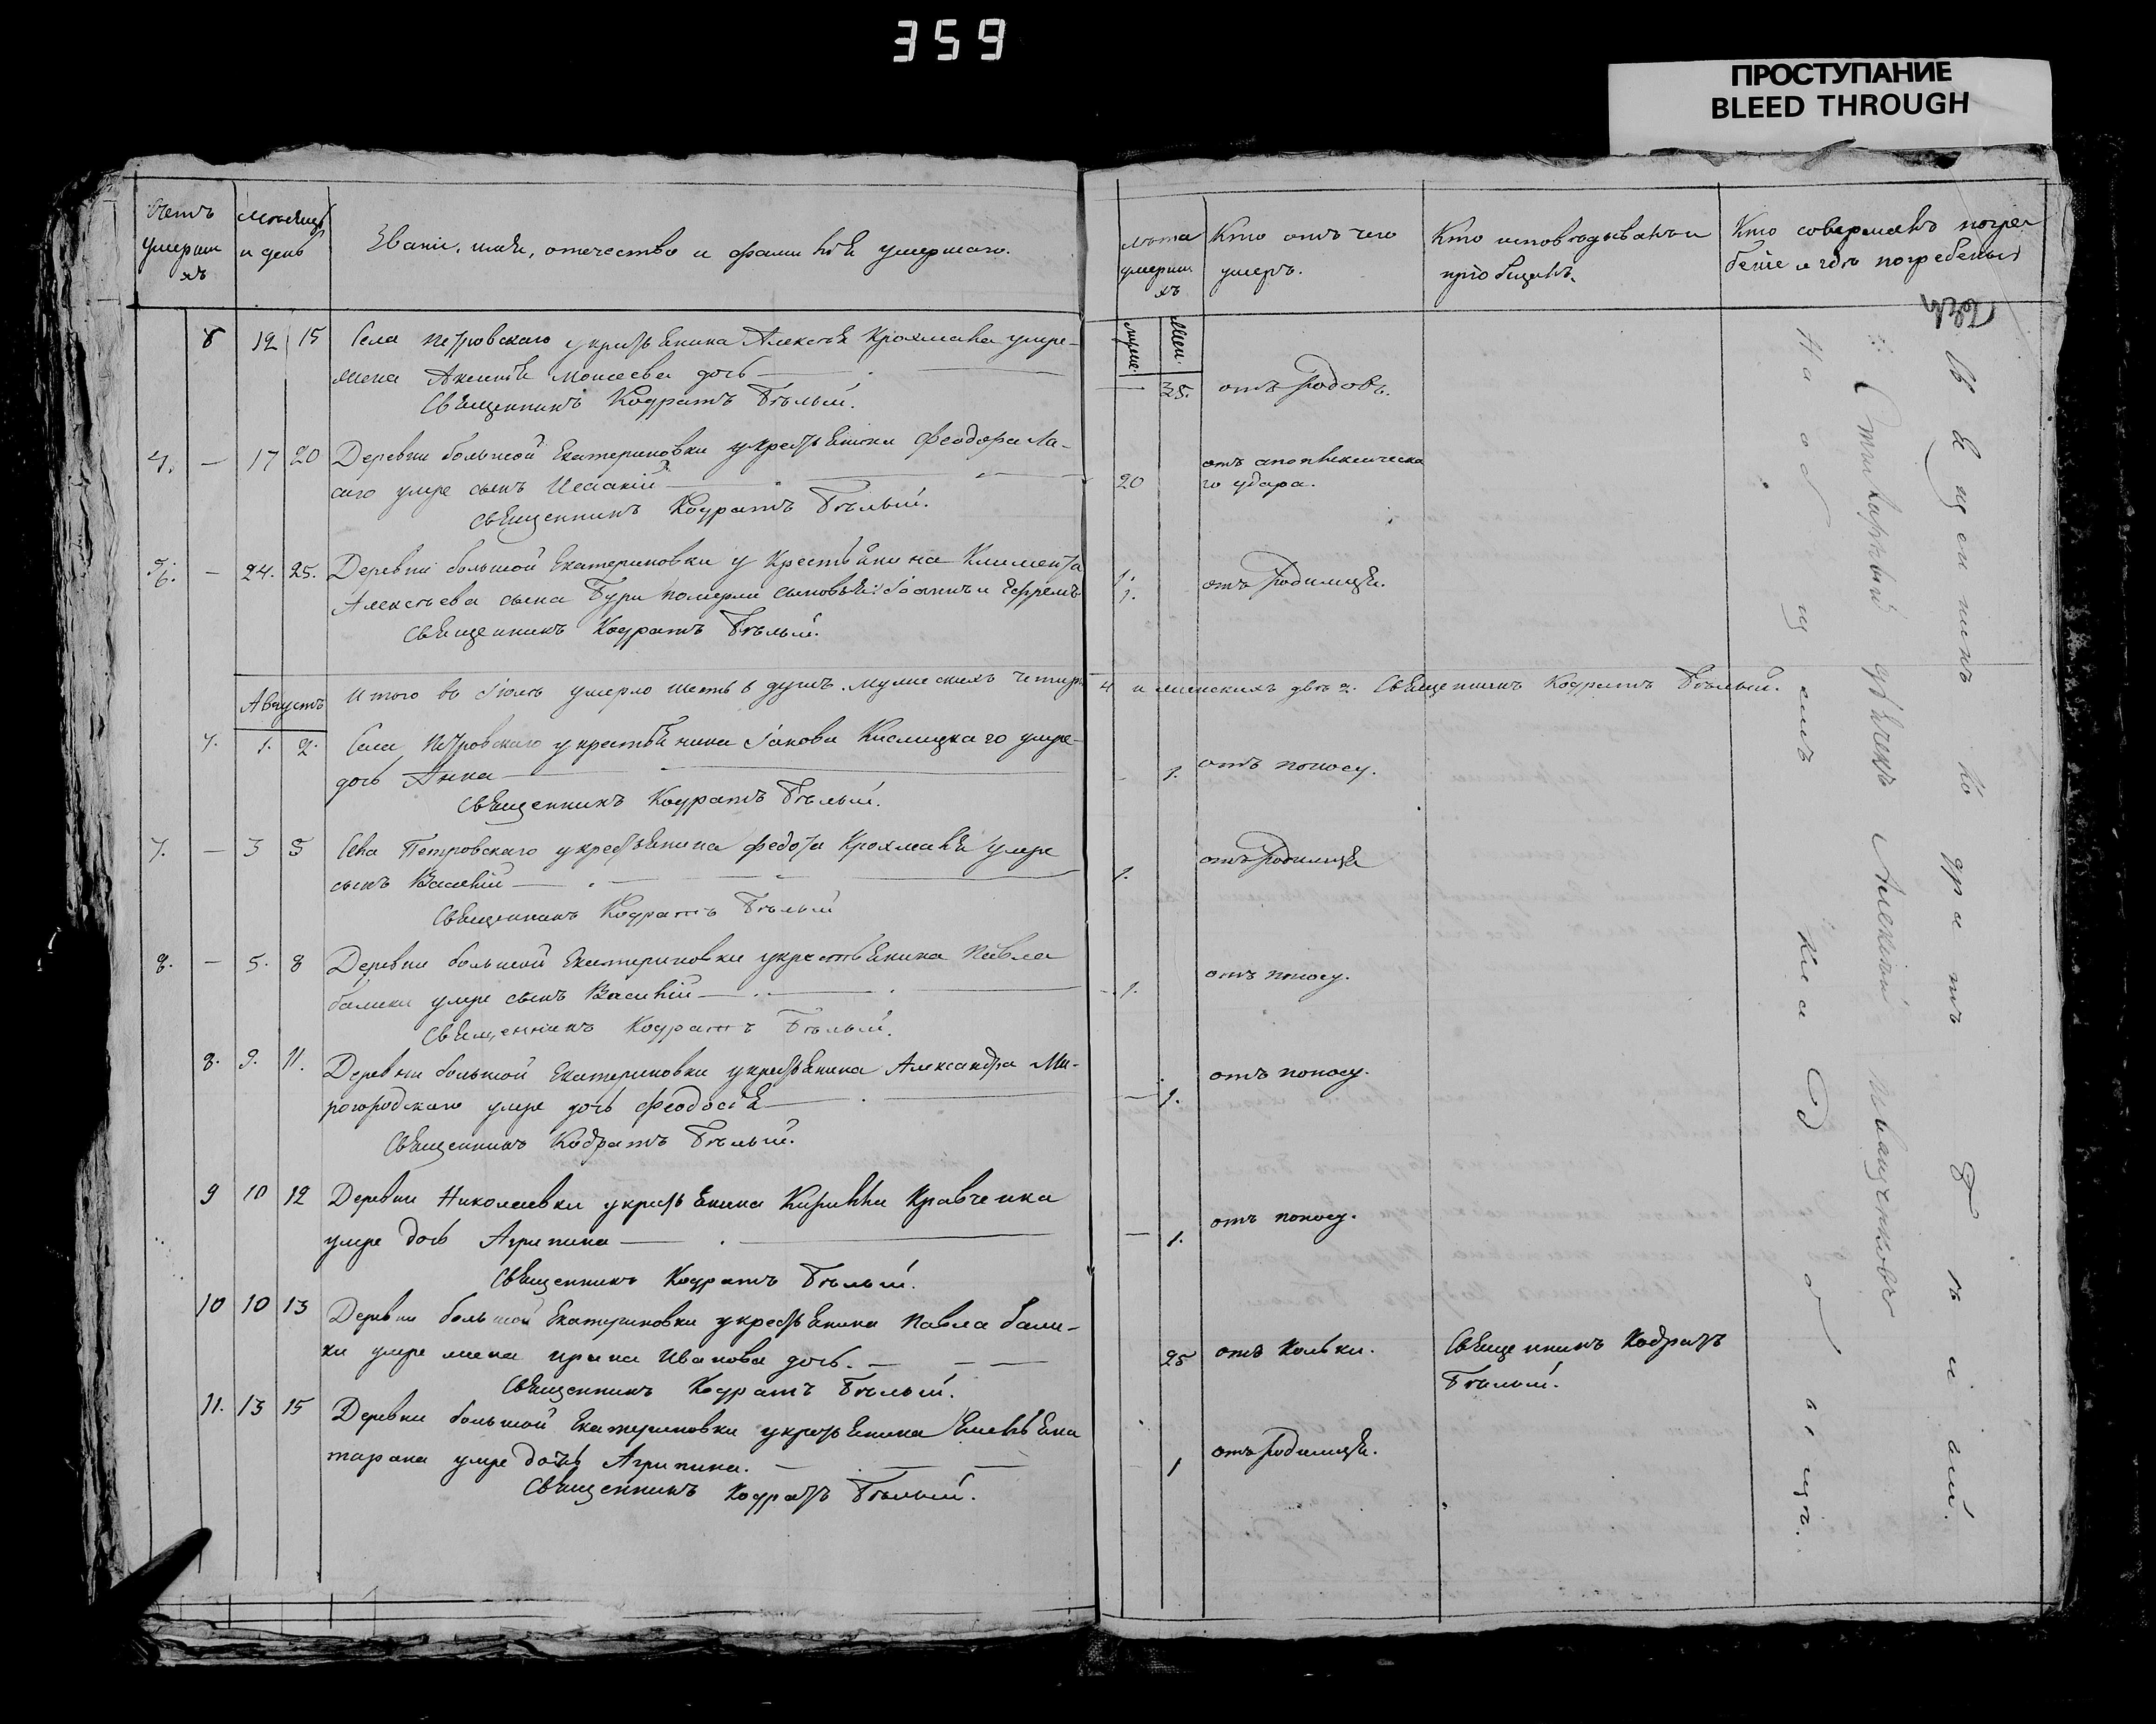 359
ПРОСТУПАНИЕ
BLEED THROUGH
Счетъ умершихъ
Мѣсяцъ и день
Званіе, имя, отечество и фамилія умершаго.
Лѣта умершихъ
Кто отъ чего умеръ.
Кто исповѣдывалъ и пріобщилъ.
Кто совершалъ погребеніе и гдѣ погребены
Муже.
Жен.
8 12 15 Села Петровскаго у крестьянина Алексѣя Крохмаля умре
жена Акилина Моисеева дочь — 35. отъ родовъ.
Священникъ Кодратъ Бѣлый.
4. — 17 20 Деревни большой Екатериновки у крестьянина Феодора Ла-
саго умре сынъ Исаакій 20 отъ апоплексическаго удара.
Священникъ Кодратъ Бѣлый.
— 24. 25. Деревни большой Екатериновки у крестьянина Климента
Алексѣева сына Бури померли сыновья: Іоаннъ и Ефремъ 1. 1. отъ родимца.
Священникъ Кодратъ Бѣлый.
Итого въ Іюлѣ умерло шесть 6 душъ. мужескихъ четыре 4 и женскихъ двѣ 2. Священникъ Кодратъ Бѣлый.
Августъ
7. 1. 2. Села Петровскаго у крестьянина Іакова Кислицкаго умре
дочь Анна — 1. отъ поносу.
Священникъ Кодратъ Бѣлый.
7. — 3 5 Села Петровскаго у крестьянина Федота Крохмаля умре
сынъ Василій 1. отъ родимца
Священникъ Кодратъ Бѣлый
8. — 5. 8 Деревни большой Екатериновки у крестьянина Павла
Балики умре сынъ Василій 1. отъ поносу.
Священникъ Кодратъ Бѣлый.
8. 9. 11. Деревни большой Екатериновки у крестьянина Александра Ми-
рогородскаго умре дочь Феодосія — 1. отъ поносу.
Священникъ Кодратъ Бѣлый.
9 10 12 Деревни Николаевки у крестьянина Кирилла Кравченка
умре дочь Агрипина — 1. отъ поносу.
Священникъ Кодратъ Бѣлый.
10 10 13 Деревни большой Екатериновки у крестьянина Павла Бали-
ки умре жена Ирина Иванова дочь. 25 отъ Кольки. Священникъ Кодратъ Бѣлый.
Священникъ Кодратъ Бѣлый.
11. 13 15 Деревни большой Екатериновки у крестьянина Емельяна
Тарана умре дочь Агрипина. 1 отъ родимца.
Священникъ Кодратъ Бѣлый.
Священникъ Кодратъ Бѣлый.
Стихарный дьячекъ Алексій Иващенковъ
На общемъ кладбищѣ.